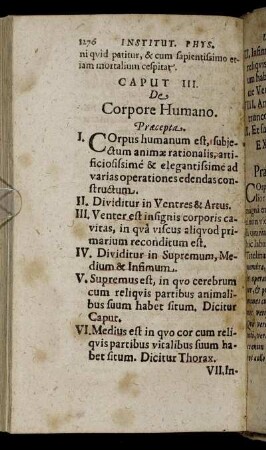 1276 INSTITUT. PHYS.
ni qvid patitur, & cum sapientissimo et-
iam mortalium cespitat.
CAPUT III.
De
Corpore Humano.
Præcepta.
I. COrpus humanum est, subje-
ctum animæ rationalis, arti-
ficiosissimé & elegantissimé ad
varias operationes edendas con-
structum.
II. Dividitur in Ventres & Artus.
III. Venter est insignis corporis ca-
vitas, in qvâ viscus aliqvod pri-
marium reconditum est.
IV. Dividitur in Supremum, Me-
dium & Infimum.
V. Supremus est, in qvo cerebrum
cum reliqvis partibus animali-
bus suum habet situm. Dicitur
Caput.
VI. Medius est in qvo cor cum reli-
qvis partibus vitalibus suum ha-
bet situm. Dicitur Thorax.
VII. In-